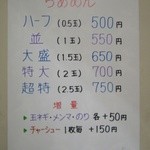 らあめん
ハーフ (0.5玉) 500円
並 (1玉) 550円
大盛 (1.5玉) 650円
特大 (2玉) 700円
超特 (2.5玉) 750円
増量
玉ネギ・メンマ・のり 各+50円
チャーシュー 1枚毎 +150円